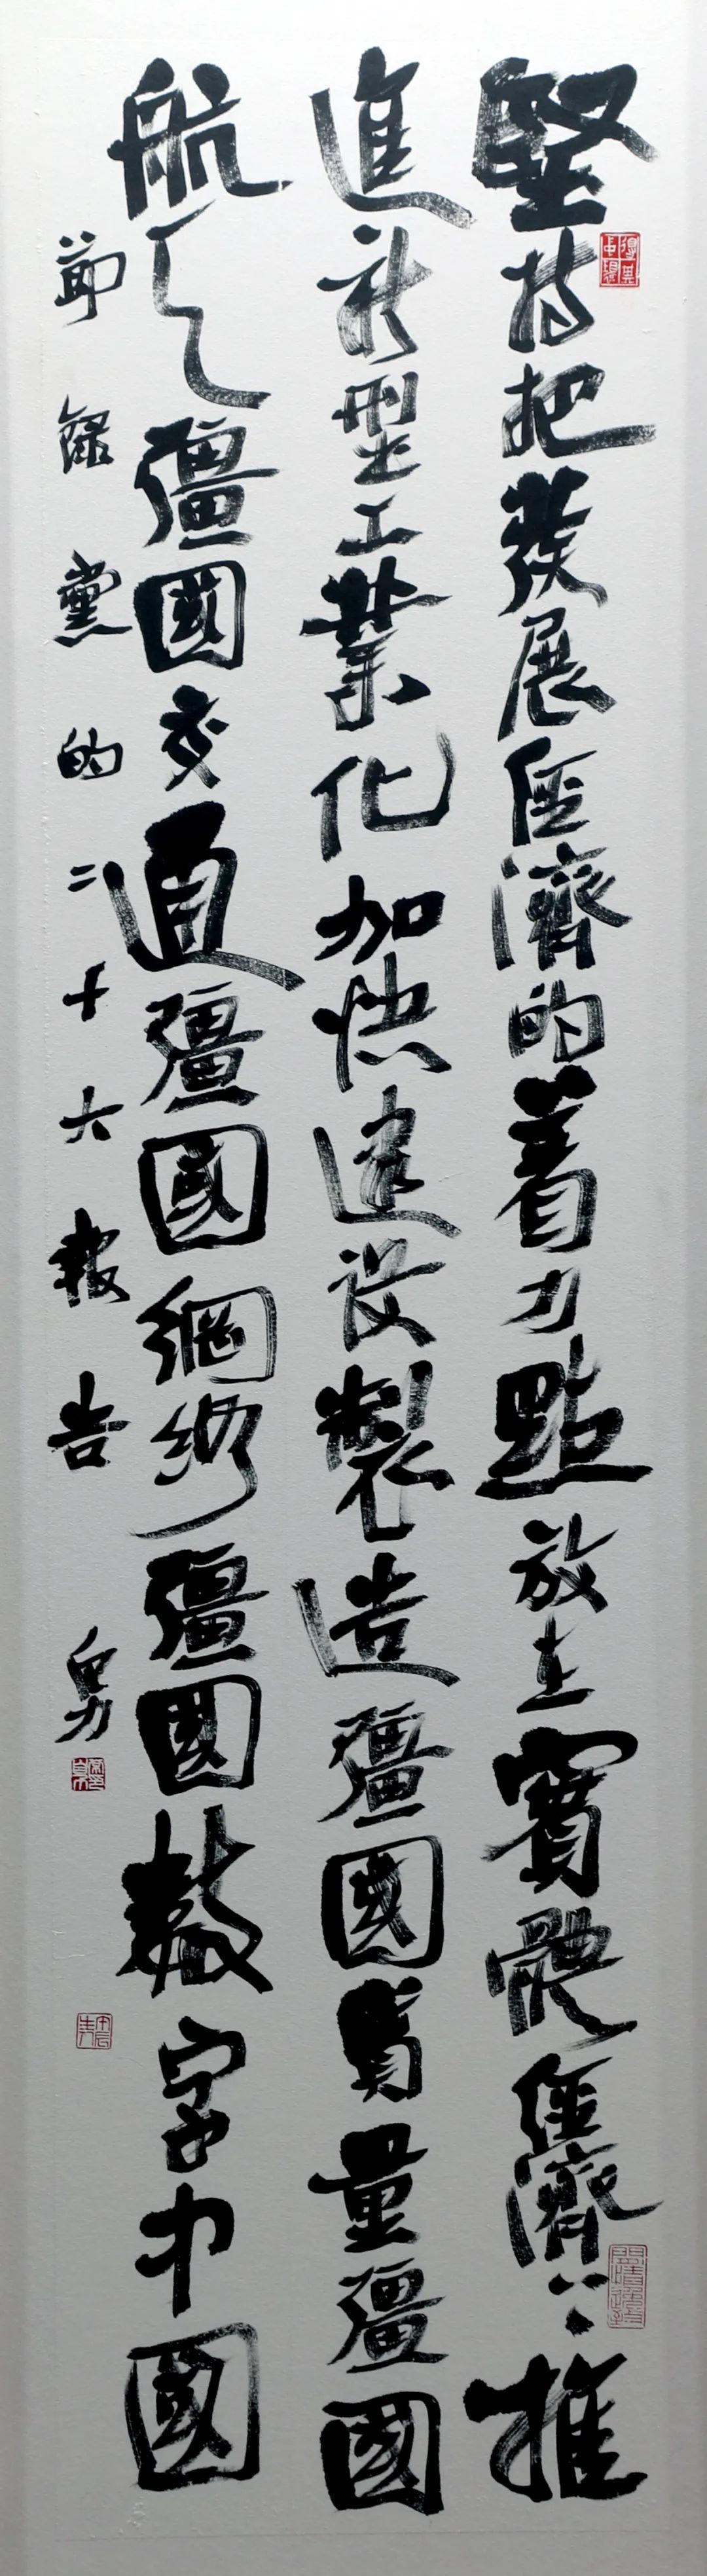 堅持把發展經濟的着力點放在實體經濟上推
進新型工業化加快建設製造彊國質量彊國
航天彊國交通彊國網絡彊國數字中國
節錄黨的二十大報告